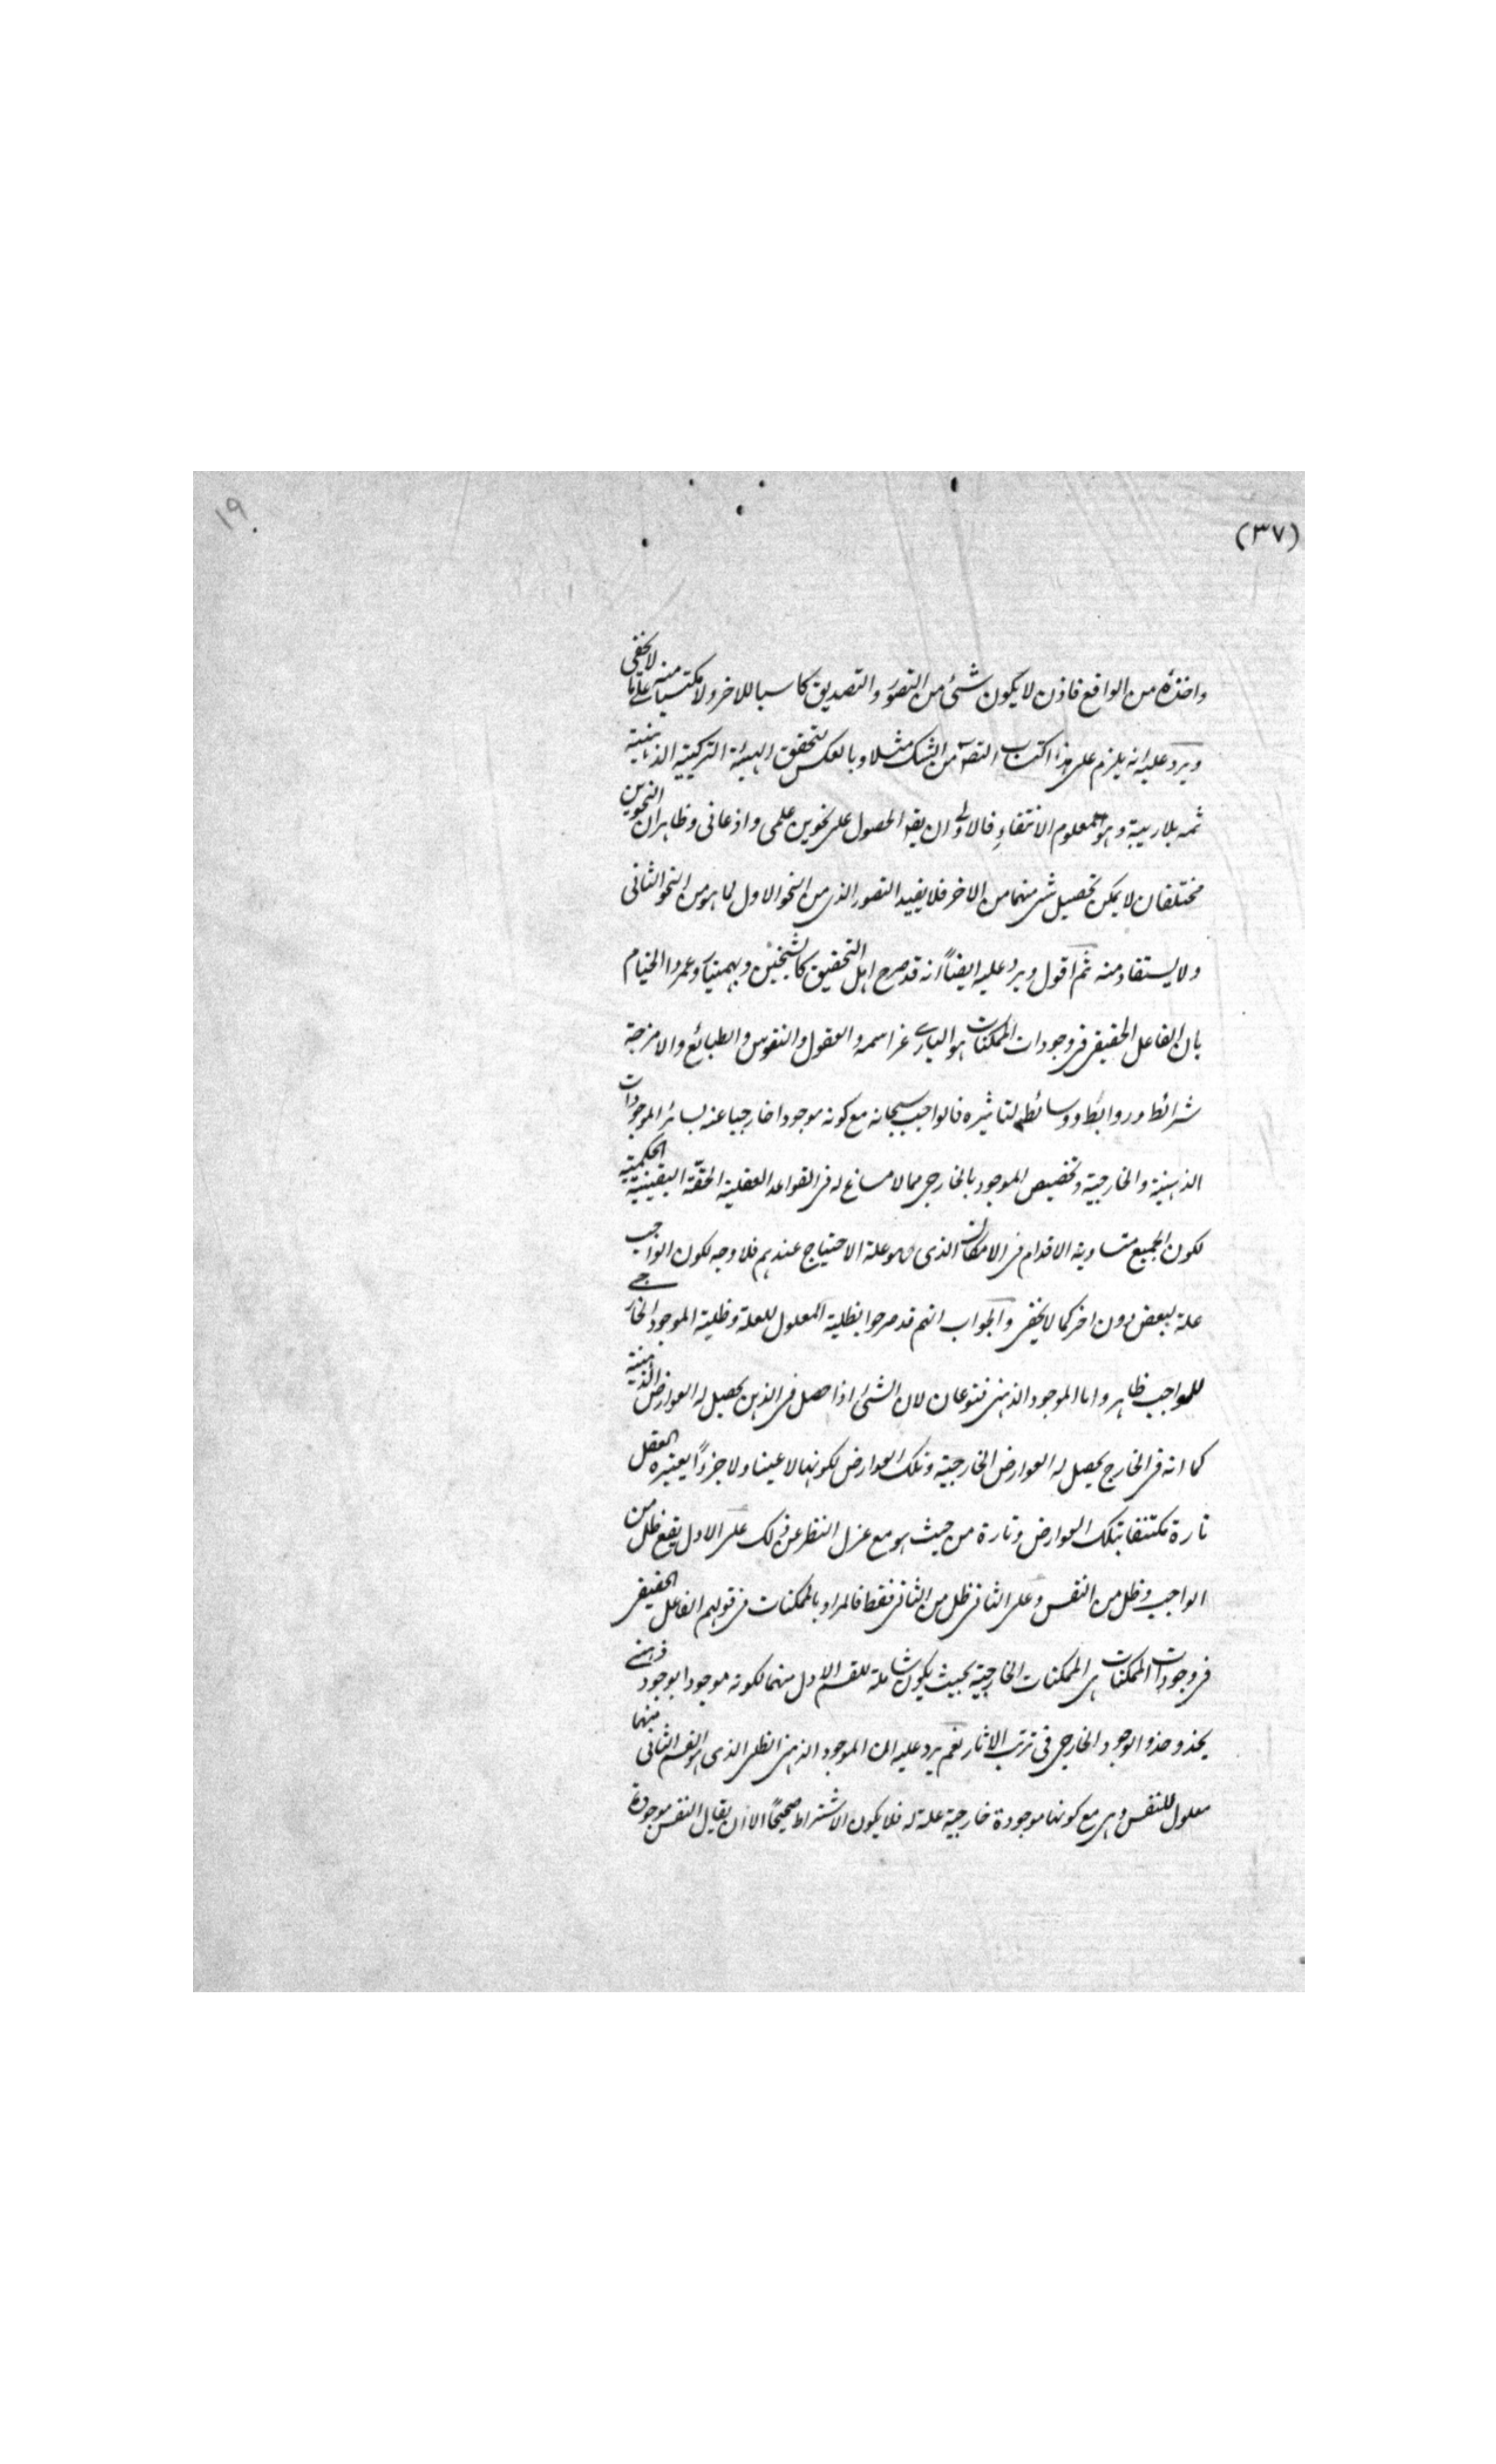 ١٩
(٣٧)
واخذه من الواقع فاذن لا يكون شئ من التصور والتصديق كاسبا للاخر ولا مكتسبا منه على ما لا يخفى
ويرد عليه انه يلزم على هذا اكتساب التصور من الشك مثلا وبالعكس لتحقق الهيئة التركيبية الذهنية
ثمه بلا ريبة وهو معلوم الانتفاء فالاولى ان يقه الحصول على نحوين علمى واذعانى وظاهر ان النحوين
مختلفان لا يمكن تحصيل شى منهما من الاخر فلا يفيد التصور الذى من النحو الاول لما هو من النحو الثانى
ولا يستفاد منه ثم اقول ويرد عليه ايضاً انه قد صرح اهل التحقيق كالشيخين وبهمنيار وعمرو الخيام
بان الفاعل الحقيقى فى وجودات الممكنات هو البارى عز اسمه والعقول والنفوس والطبائع والامزجة
شرائط وروابط ووسائط لتاثيره فالواجب سبحانه مع كونه موجودا خارجيا عنه لسائر الموجودات
الذهنية والخارجية وتخصيص الموجود بالخارجى مما لا مساغ له فى القواعد العقلية الحقة اليقينية الحكمية
لكون الجميع متساوية الاقدام فى الامكان الذى هو علة الاحتياج عندهم فلا وجه لكون الواجب
علة لبعض دون اخر كما لا يخفى والجواب انهم قد صرحوا بظلية المعلول للعلة وظلية الموجود الخارجى
للواجب ظاهر واما الموجود الذهنى فنوعان لان الشئ اذا حصل فى الذهن يحصل له العوارض الذهنية
كما انه فى الخارج يحصل له العوارض الخارجية وتلك العوارض لكونها لا عينا ولا جزءاً يعتبره العقل
تارة مكتنفا بتلك العوارض وتارة من حيث هو مع عزل النظر عن ذلك على الاول يقع ظل من
الواجب وظل من النفس وعلى الثانى ظل من الثانى فقط فالمراد بالممكنات فى قولهم الفاعل الحقيقى
فى وجودات الممكنات هى الممكنات الخارجية بحيث يكون شاملة للقسم الاول منهما لكونه موجودا بوجود ذهنى
يحذو حذو الوجود الخارجى فى ترتب الاثار نعم يرد عليه ان الموجود الذهنى الظلى الذى هو القسم الثانى منهما
معلول للنفس وهى مع كونها موجودة خارجية علة له فلا يكون الاشتراط صحيحًا الا ان يقال النفس موجودة